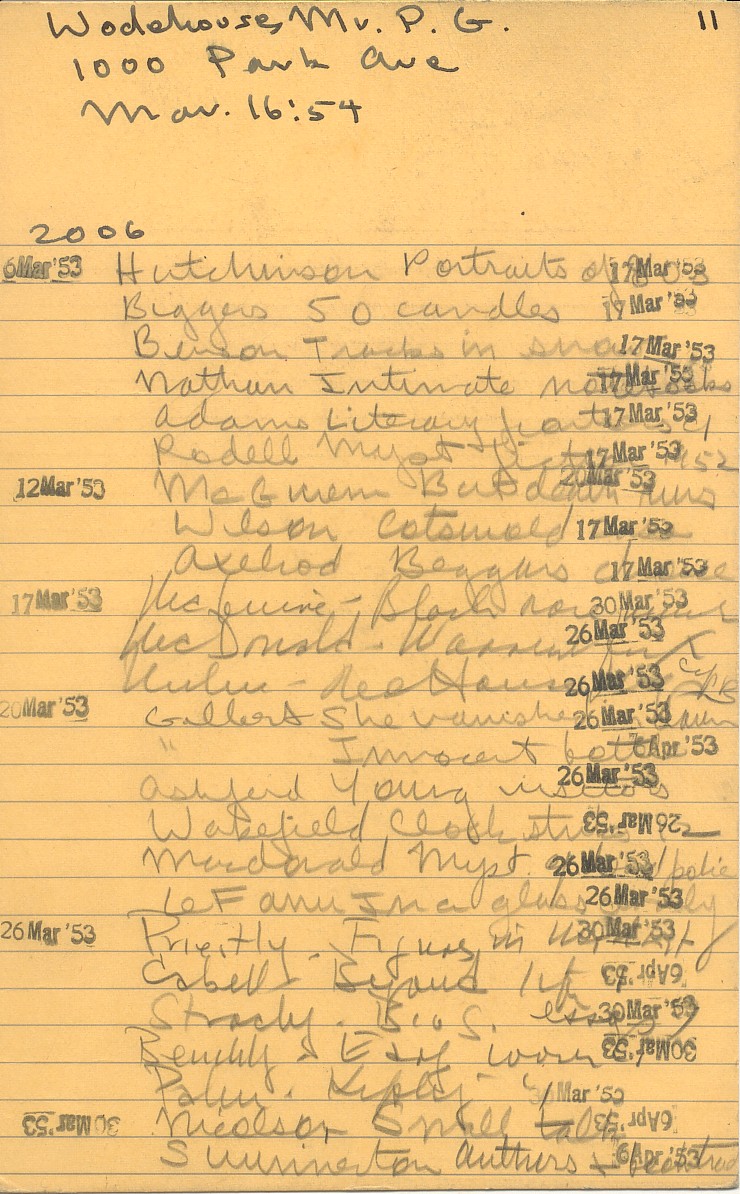 Wodehouse, Mr. P. G. 11
1000 Park Ave
Mar. 16:54
2006
6 Mar '53 Hutchinson Portraits of 17 Mar '53
Biggers 50 candles 17 Mar '53
Benson Tracks in snow 17 Mar '53
Nathan Intimate notebooks 17 Mar '53
Adams Literary 17 Mar '53
Rodell Myst fict 17 Mar '53 1952
20 Mar '53
12 Mar '53 McGuern
Wilson Cotswold 17 Mar '53
Axelrod Beggars choice 17 Mar '53
17 Mar '53 McGuire - Black rose 30 Mar '53
McDonald - 26 Mar '53
Milne - Red House 26 Mar '53
20 Mar '53 Gilbert She vanished 26 Mar '53 dawn
" Innocent bottle 6 Apr '53
Ashford Young visitors 26 Mar '53
Wakefield Clock strikes 26 Mar '53 12
Macdonald Myst. 26 Mar '53
LeFanu In a glass darkly 26 Mar '53
26 Mar '53 Priestly - Figures in 30 Mar '53
Cabell - Beyond life 6 Apr '53
Strachy - Biog. essays 30 Mar '53
Benchly - 30 Mar '53
Palm. Kipling 30 Mar '53
30 Mar '53 Nicolson Small talk 6 Apr '53
Swinnerton Authors 6 Apr '53